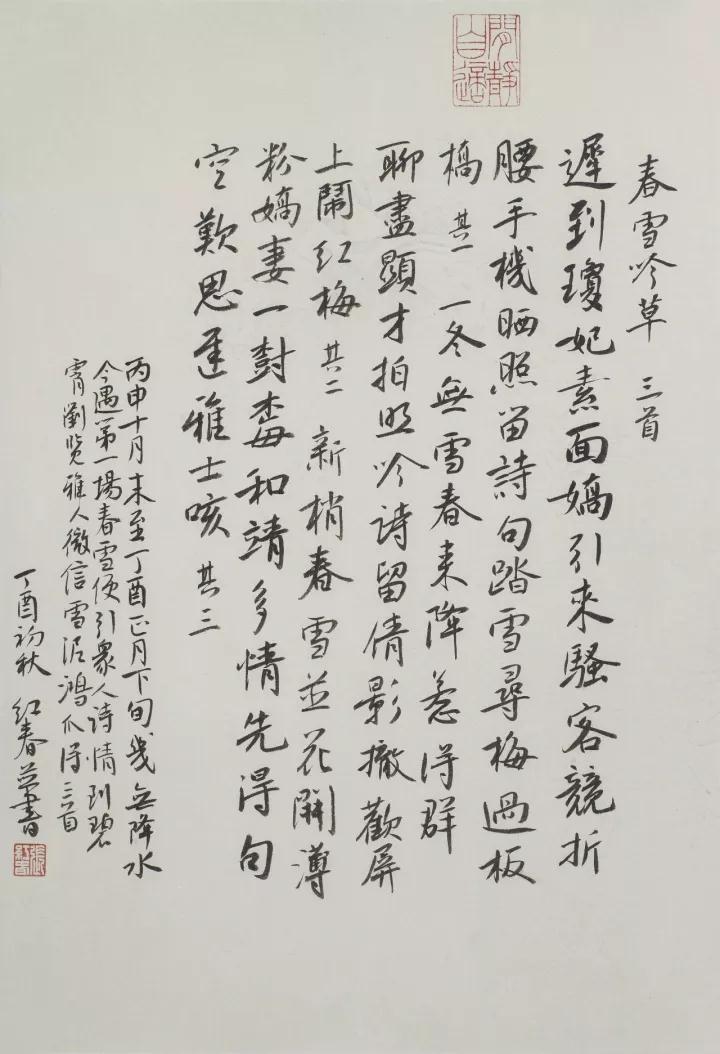 閒靜自適
春雪吟草 三首
遲到瓊妃素面嬌引來騷客競折
腰手機晒照留詩句踏雪尋梅過板
橋 其一 一冬無雪春來降惹得群
聊盡顯才拍照吟诗留倩影撤歡屏
上鬧红梅 其二 新梢春雪並花開薄
粉嬌妻一對 和靖多情先得句
空歎思遲雅士咳 其三
丙申十月末至丁酉正月下旬幾無降水
今遇第一場春雪便引衆人诗情到碧
霄劉览雅人微信雪泥鴻爪得三首
丁酉初秋 红春并書